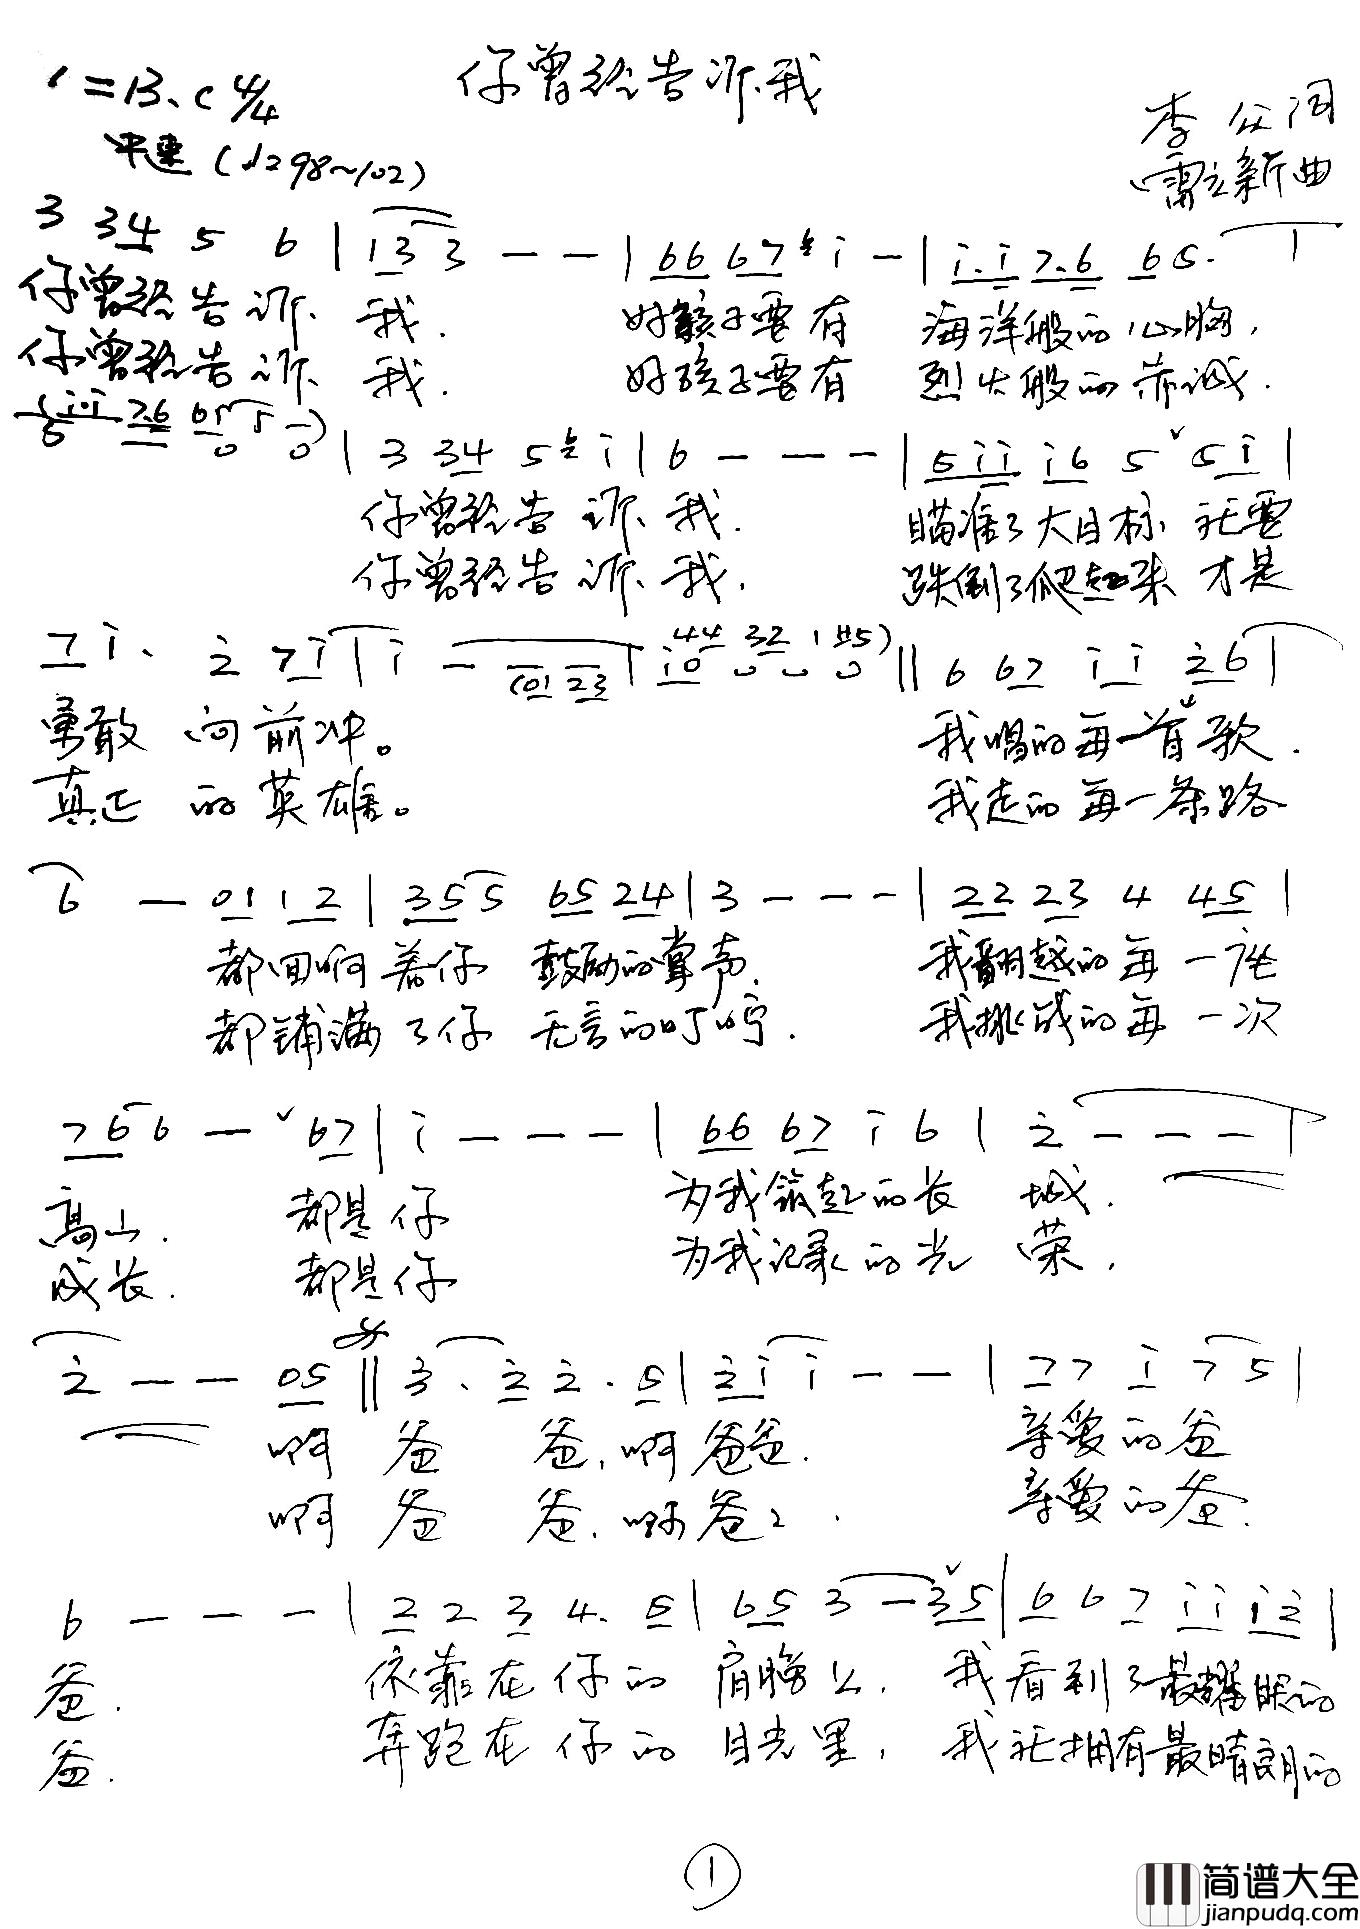 你曾经告诉我
1=B、C 4/4
中速(♩=98~102)
李 众词
雷立新曲
3 34 5 6 | 133 - - | 66 67 i - | i.i 7.6 65. |
你曾经告诉 我. 好孩子要有 海洋般的心胸,
你曾经告诉 我. 好孩子要有 烈火般的赤诚.
| 3 34 5 i | 6 - - - | 5ii i6 5 ˅ 5i |
你曾经告 诉 我. 瞄准了大目标 就要
你曾经告 诉 我. 跌倒了爬起来 才是
7i. 2 7i | i - (01 23 | 6 67 ii 26 |
勇敢 向前冲。 我唱的每一首歌.
真正 的英雄。 我走的每一条路
6 - 01 12 | 355 65 24 | 3 - - - | 22 23 4 45 |
都回响着你 鼓励的掌声. 我翻越的每一座
都铺满了你 无言的叮咛. 我挑战的每一次
766 - ˅ 67 | i - - - | 66 67 i 6 | 2 - - - |
高山. 都是你 为我筑起的长 城.
成长. 都是你 为我记录的光 荣.
2 - - 05 || 3. 2 2. 5 | 2i i - - | 77 i 7 5 |
啊 爸 爸,啊爸爸. 亲爱的爸
啊 爸 爸.啊爸〻. 亲爱的爸.
6 - - - | 2 2 3 4. 5 | 65 3 - ˅ 35 | 6 6 7 ii i2 |
爸. 依靠在你的 肩膀上, 我看到了最耀眼的
爸. 奔跑在你的 目光里, 我就拥有最晴朗的
1
简谱大全
jianpudq.com